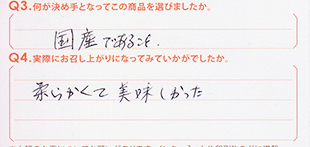 Q3.何が決め手となってこの商品を選びましたか。
国産であること.
Q4.実際にお召し上がりになってみていかがでしたか。
柔らかくて美味しかった